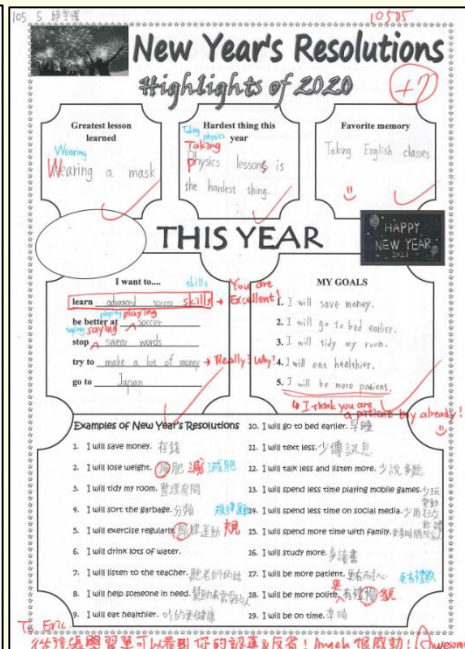 105 5
10505
New Year's Resolutions
Highlights of 2020
+7
Greatest lesson
learned
Wearing
Wearing a mask
Hardest thing this
year
Taking physics
Taking
Physics lessons is
the hardest thing.
Favorite memory
Taking English classes
THIS YEAR
HAPPY
NEW YEAR
2021
I want to....
skills
learn advanced soccer skills → You are
Excellent!
playing playing
be better at soccer
saying saying
stop swear words
try to make a lot of money → Really? Why?
go to Japan
MY GOALS
1. I will save money.
2. I will go to bed earlier.
3. I will tidy my room.
4. I will eat healthier.
5. I will be more patient.
I think you are
a patient boy already!
Examples of New Year's Resolutions
1. I will save money. 存錢
2. I will lose weight. 肥 減 減肥
3. I will tidy my room. 整理房間
4. I will sort the garbage. 分類
規律運動
5. I will exercise regularly. 律運動 規
6. I will drink lots of water.
7. I will listen to the teacher. 聽老師的話
8. I will help someone in need. 幫助有需要的人
9. I will eat healthier. 吃的更健康
10. I will go to bed earlier. 早睡
11. I will text less. 少傳訊息
12. I will talk less and listen more. 少說多聽
13. I will spend less time playing mobile games. 少玩
14. I will spend less time on social media. 少用社交
15. I will spend more time with family.
16. I will study more. 多讀書
17. I will be more patient. 更有耐心 更有禮貌
更
18. I will be more polite. 有禮 貌
19. I will be on time. 準時
To Eric
從這張學習單可以看到你的認真&反省! Angela 很感動! Awesome